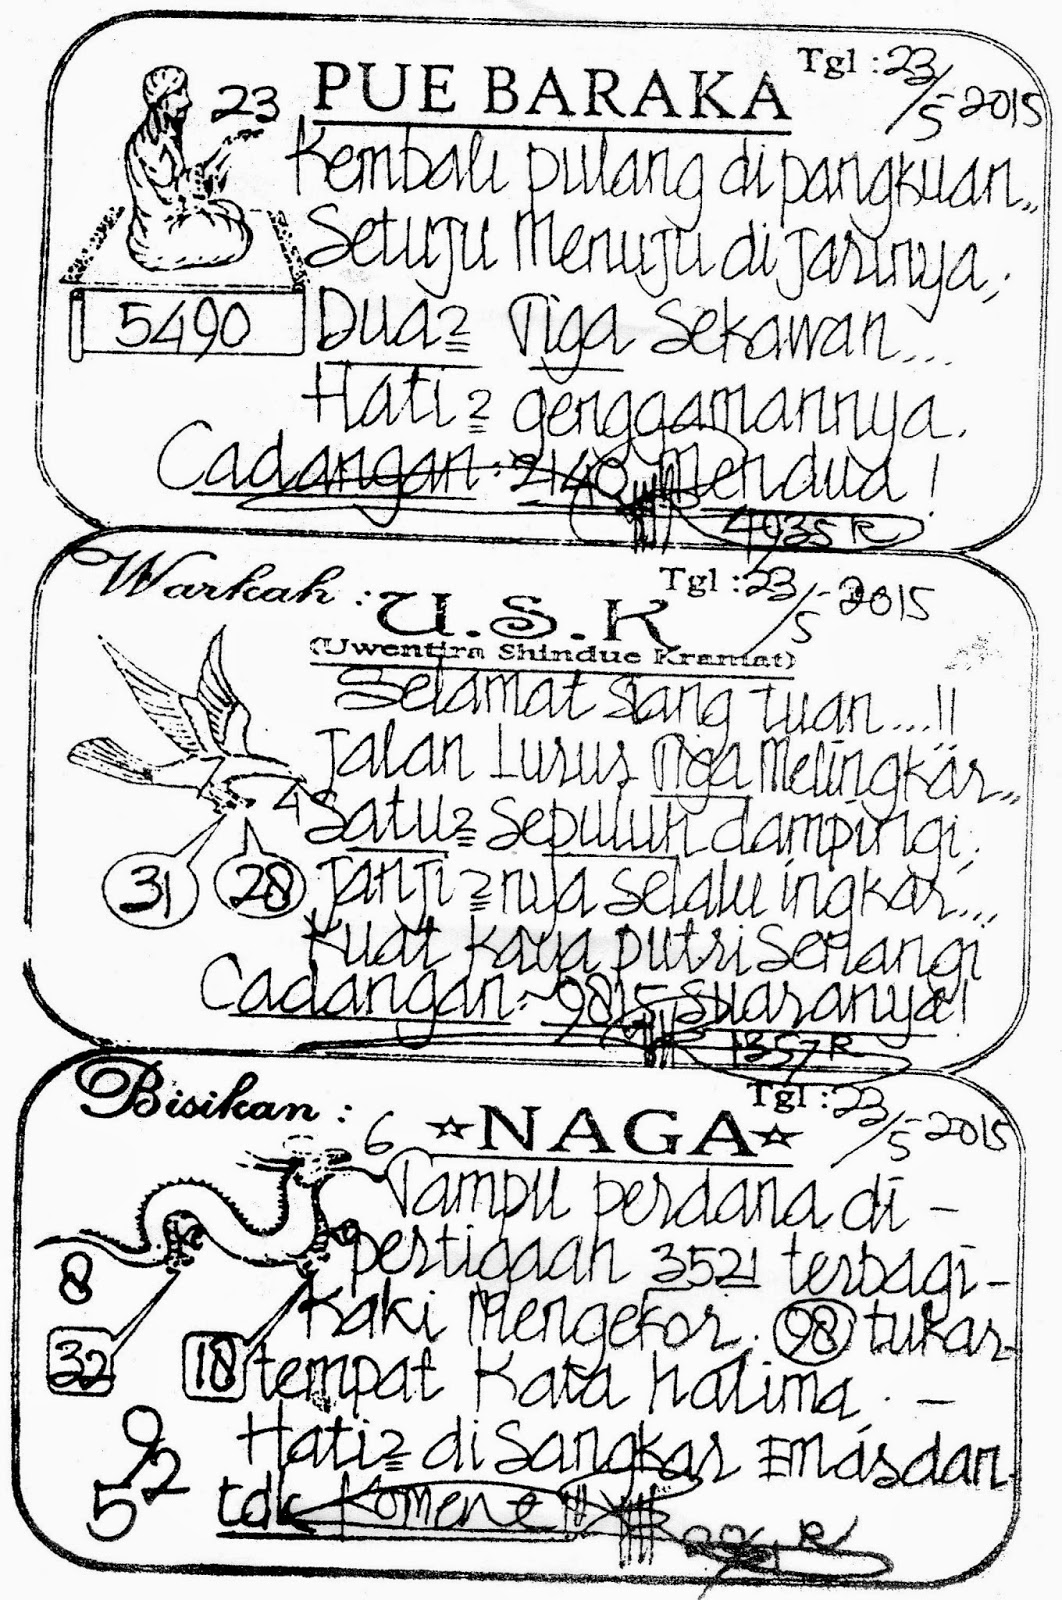 Tgl : 23/5-2015
PUE BARAKA
23
Kembali pulang di pangkuan,,
Setuju Menuju di jarinya,.
5490
Dua2 Tiga Sekawan...
Hati2 genggamannya.
Cadangan : 2140 Mendua !
4935 R
Warkah : U.S.K
Tgl : 23/5-2015
(Uwentira Shindue Kramat)
Selamat siang tuan...!!
Jalan Lurus Tiga Melingkar,,
4
Satu2 Sepuluh dampingi,.
31
28
Janji2nya selalu ingkar...
Kuat kaya putri Serangi
Cadangan : 9815 Suaranya!
1357 R
Bisikan :
Tgl : 23/5-2015
☆NAGA☆
6
Tampu perdana di -
pertigaan 3521 terbagi -
8
Kaki Mengekor. 98 tukar -
32
18
tempat Kata halima. -
Hati2 di Sangkar Emas dan -
9
2
5
tdk Koment
R